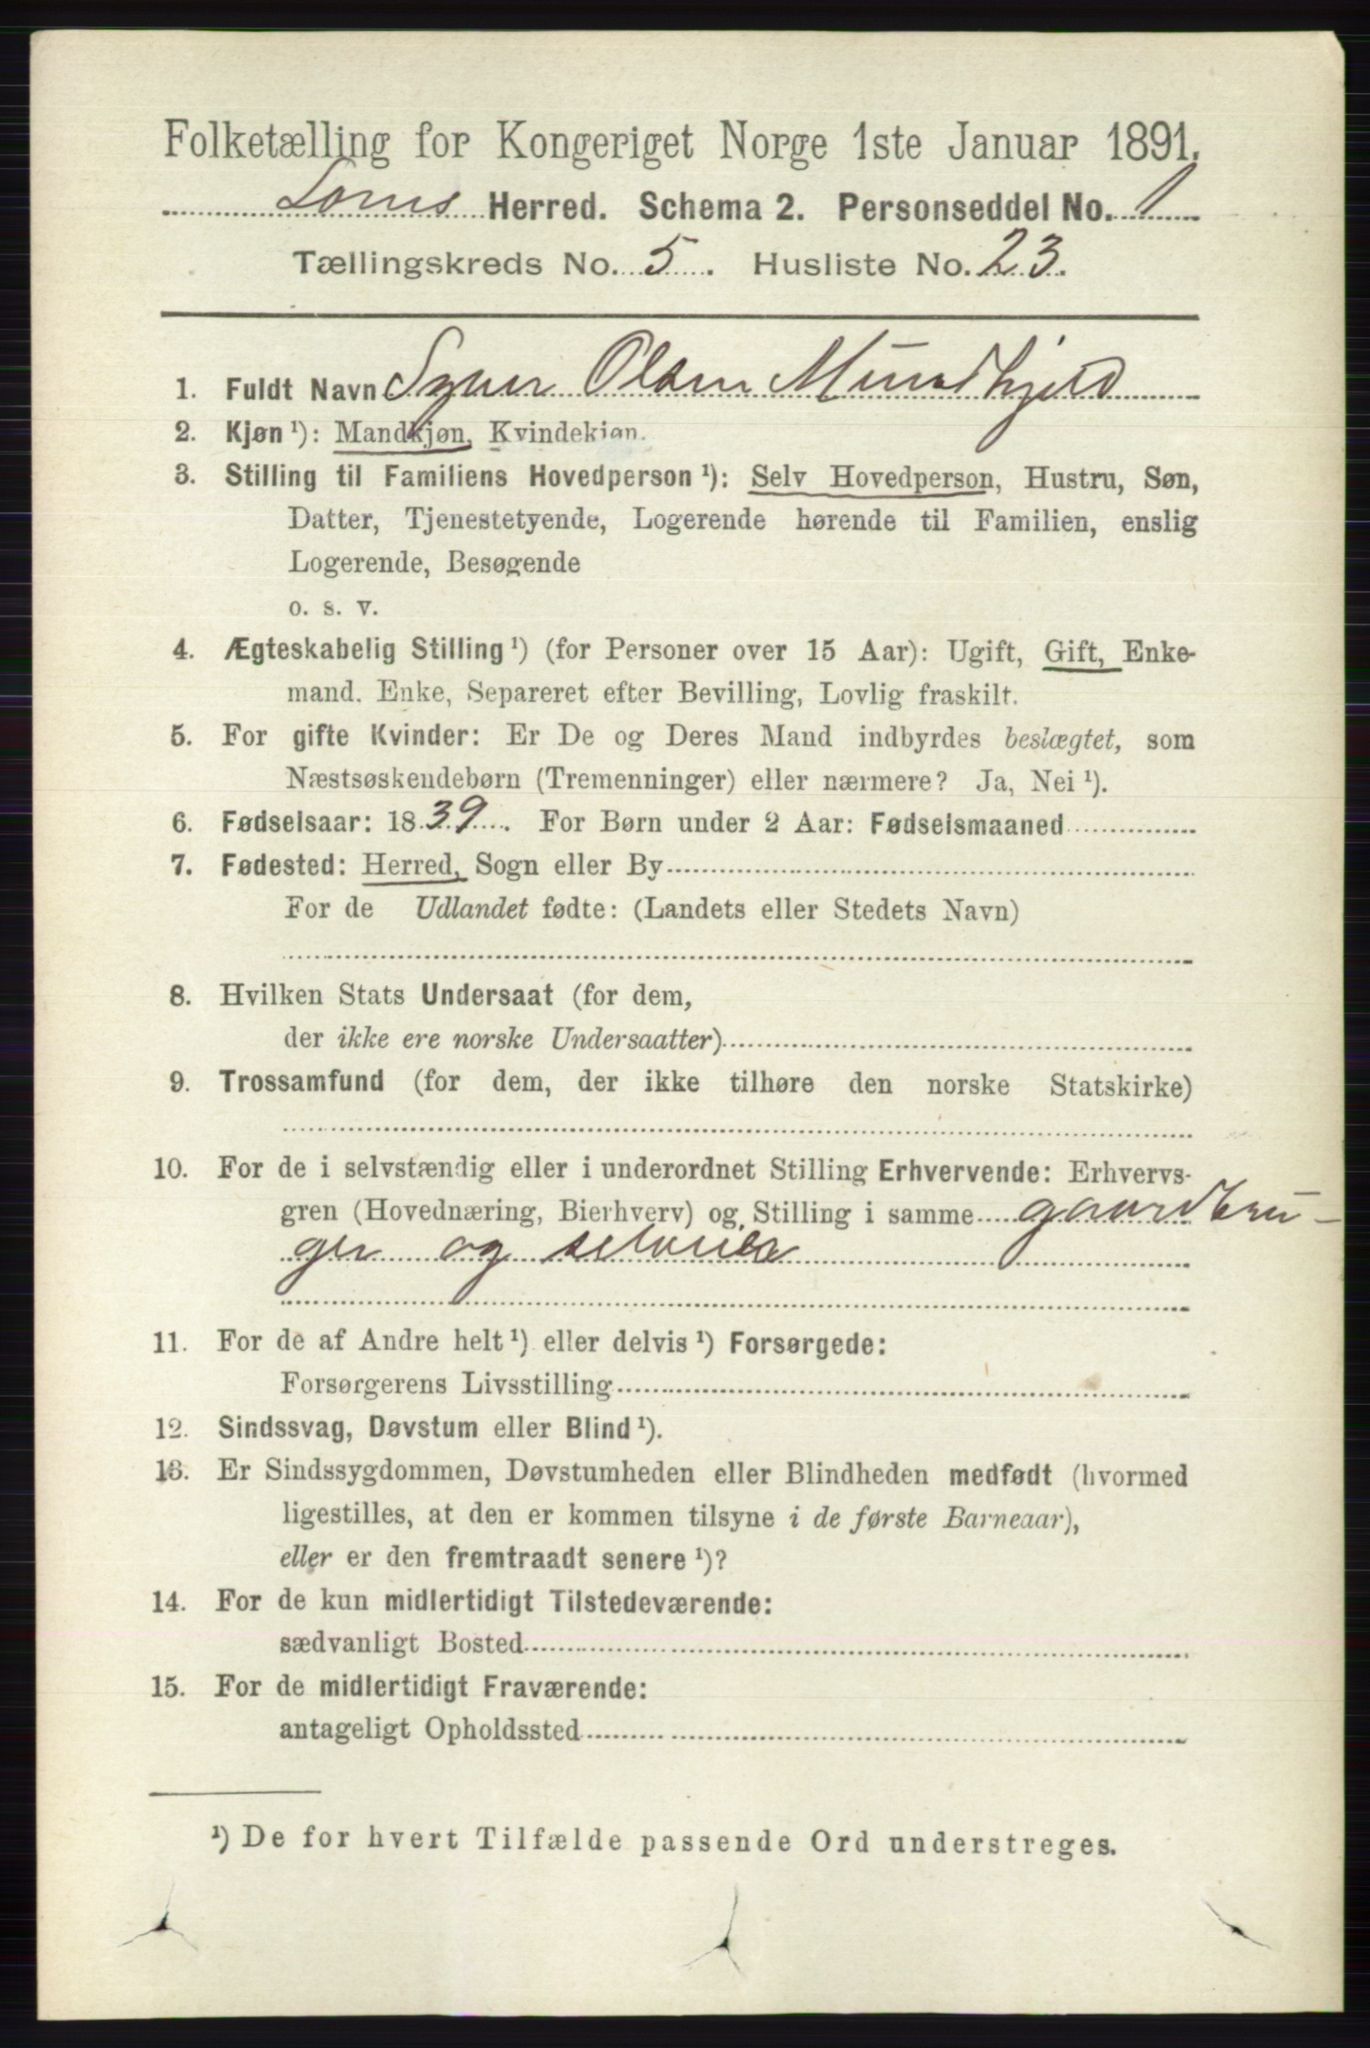 Folketælling for Kongeriget Norge 1ste Januar 1891.
Loms Herred. Schema 2. Personseddel No. 1
Tællingskreds No. 5. Husliste No. 23.
1. Fuldt Navn Syver Olsen Mundhjeld
2. Kjøn ¹): Mandkjøn, Kvindekjøn.
3. Stilling til Familiens Hovedperson ¹): Selv Hovedperson, Hustru, Søn,
Datter, Tjenestetyende, Logerende hørende til Familien, enslig
Logerende, Besøgende
o. s. v.
4. Ægteskabelig Stilling ¹) (for Personer over 15 Aar): Ugift, Gift, Enke-
mand. Enke, Separeret efter Bevilling, Lovlig fraskilt.
5. For gifte Kvinder: Er De og Deres Mand indbyrdes beslægtet, som
Næstsøskendebørn (Tremenninger) eller nærmere? Ja, Nei ¹).
6. Fødselsaar: 1839. For Børn under 2 Aar: Fødselsmaaned
7. Fødested: Herred, Sogn eller By
For de Udlandet fødte: (Landets eller Stedets Navn)
8. Hvilken Stats Undersaat (for dem,
der ikke ere norske Undersaatter)
9. Trossamfund (for dem, der ikke tilhøre den norske Statskirke)
10. For de i selvstændig eller i underordnet Stilling Erhvervende: Erhvervs-
gren (Hovednæring, Bierhverv) og Stilling i samme gaardbru-
ger og selveier
11. For de af Andre helt ¹) eller delvis ¹) Forsørgede:
Forsørgerens Livsstilling
12. Sindssvag, Døvstum eller Blind ¹).
13. Er Sindssygdommen, Døvstumheden eller Blindheden medfødt (hvormed
ligestilles, at den er kommen tilsyne i de første Barneaar),
eller er den fremtraadt senere ¹)?
14. For de kun midlertidigt Tilstedeværende:
sædvanligt Bosted
15. For de midlertidigt Fraværende:
antageligt Opholdssted
¹) De for hvert Tilfælde passende Ord understreges.